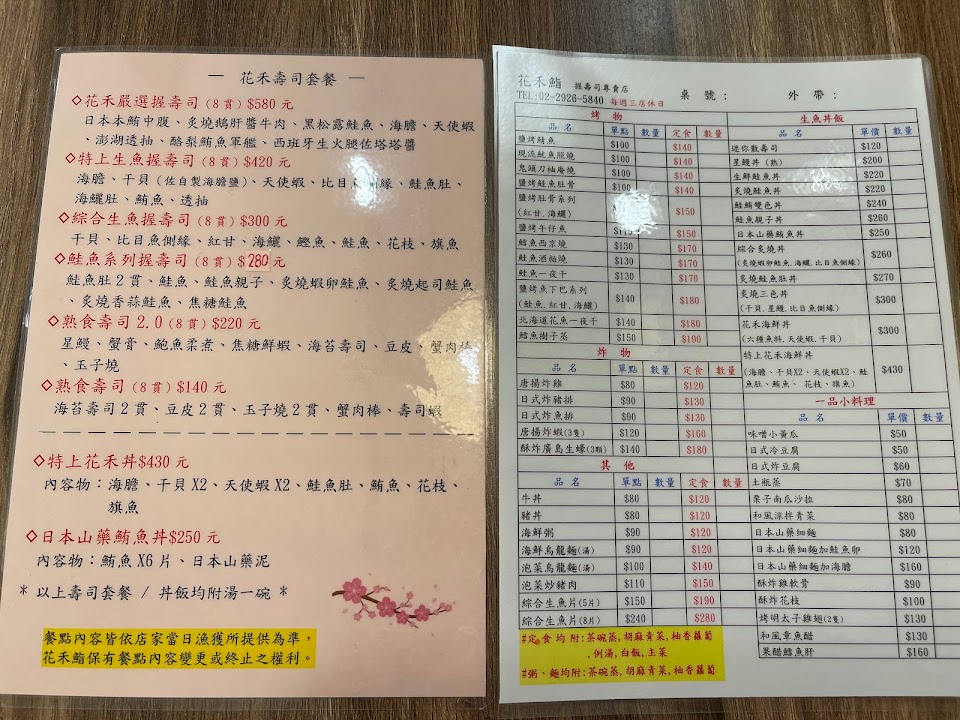 — 花禾壽司套餐 —
◇花禾嚴選握壽司(8貫)$580元
日本本鮪中腹、炙燒鵝肝醬牛肉、黑松露鮭魚、海膽、天使蝦
、澎湖透抽、酪梨鮪魚軍艦、西班牙生火腿佐塔塔醬
◇特上生魚握壽司(8貫)$420元
海膽、干貝(佐自製海膽鹽)、天使蝦、比目魚側緣、鮭魚肚、
海鱺肚、鮪魚、透抽
◇綜合生魚握壽司(8貫)$300元
干貝、比目魚側緣、紅甘、海鱺、鰹魚、鮭魚、花枝、旗魚
◇鮭魚系列握壽司(8貫)$280元
鮭魚肚2貫、鮭魚、鮭魚親子、炙燒蝦卵鮭魚、炙燒起司鮭魚
、炙燒香蒜鮭魚、焦糖鮭魚
◇熟食壽司2.0(8貫)$220元
星鰻、蟹膏、鮑魚柔煮、焦糖鮮蝦、海苔壽司、豆皮、蟹肉棒
、玉子燒
◇熟食壽司(8貫)$140元
海苔壽司2貫、豆皮2貫、玉子燒2貫、蟹肉棒、壽司蝦
◇特上花禾丼$430元
內容物：海膽、干貝X2、天使蝦X2、鮭魚肚、鮪魚、花枝、
旗魚
◇日本山藥鮪魚丼$250元
內容物：鮪魚X6片、日本山藥泥
*以上壽司套餐 / 丼飯均附湯一碗*
餐點內容皆依店家當日漁獲所提供為準，
花禾鮨保有餐點內容變更或終止之權利。
花禾鮨 握壽司專賣店
TEL:02-2926-5840 每週三店休日 桌號： 外帶：
烤物
品名 單點 數量 定食 數量
鹽烤鯖魚 $100 $140
現流魷魚照燒 $100 $140
鬼頭刀柚庵燒 $100 $140
鹽烤鮭魚肚骨 $100 $140
鹽烤肚骨系列
(紅甘、海鱺) $150
鹽烤午仔魚 $150
鱈魚西京燒 $130 $170
鮭魚酒粕燒 $130 $170
鮭魚一夜干 $130 $170
鹽烤魚下巴系列
(鮭魚.紅甘.海鱺) $140 $180
北海道花魚一夜干 $140 $180
鱈魚樹子蒸 $150 $190
炸物
品名 單點 數量 定食 數量
唐揚炸雞 $80 $120
日式炸豬排 $90 $130
日式炸魚排 $90 $130
唐揚炸蝦(3隻) $120 $160
酥炸廣島生蠔(3顆) $140 $180
其他
品名 單點 數量 定食 數量
牛丼 $80 $120
豬丼 $80 $120
海鮮粥 $90 $120
海鮮烏龍麵(湯) $90 $120
泡菜烏龍麵(湯) $100 $140
泡菜炒豬肉 $110 $150
綜合生魚片(5片) $150 $190
綜合生魚片(8片) $240 $280
#定食均附:茶碗蒸,胡麻青菜,柚香蘿蔔
,例湯,白飯,主菜
#粥、麵均附:茶碗蒸,胡麻青菜,柚香蘿蔔
生魚丼飯
品名 單價 數量
迷你散壽司 $120
星鰻丼(熟) $200
生鮮鮭魚丼 $220
炙燒鮭魚丼 $220
鮭鮪雙色丼 $240
鮭魚親子丼 $260
日本山藥鮪魚丼 $250
綜合炙燒丼
(炙燒蝦卵鮭魚.海鱺.比目魚側緣) $260
炙燒鮭魚肚丼 $270
炙燒三色丼
(干貝.星鰻.比目魚側緣) $300
花禾海鮮丼
(六種魚料.天使蝦.干貝) $300
特上花禾海鮮丼
(海膽、干貝X2、天使蝦X2、鮭
魚肚、鮪魚、花枝、旗魚) $430
一品小料理
品名 單價 數量
味噌小黃瓜 $50
日式冷豆腐 $50
日式炸豆腐 $60
土瓶蒸 $70
栗子南瓜沙拉 $80
和風涼拌青菜 $80
日本山藥細麵 $80
日本山藥細麵加鮭魚卵 $120
日本山藥細麵加海膽 $160
酥炸雞軟骨 $90
酥炸花枝 $100
烤明太子雞翅(2隻) $130
和風章魚醋 $130
果醋鱈魚肝 $160